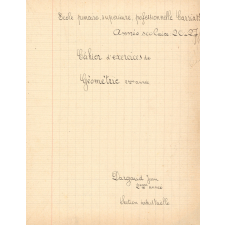 Ecole primaire supérieure professionnelle
Année scolaire 26-27
Cahier d'exercices de
Géométrie
Dargaud Jean
2ème année
Section industrielle